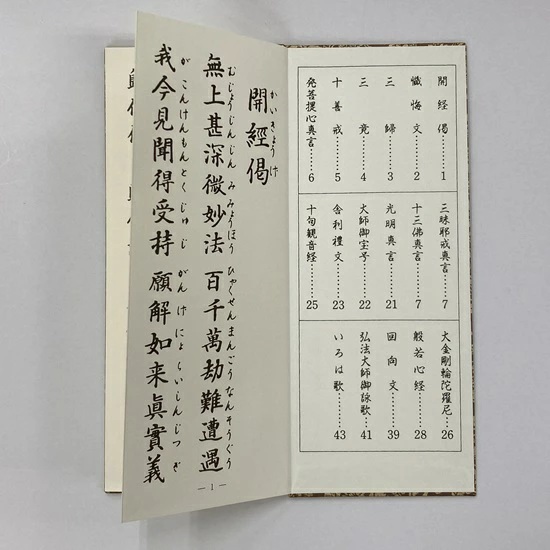 開経偈……1
懺悔文……2
三帰……3
三竟……4
十善戒……5
発菩提心真言……6
三昧耶戒真言……7
十三佛真言……7
光明真言……21
大師御宝号……22
舎利禮文……23
十句観音経……25
大金剛輪陀羅尼……26
般若心経……28
回向文……39
弘法大師御詠歌……41
いろは歌……43
かいきょうげ
開經偈
むじょうじんじんみみょうほう ひゃくせんまんごうなんそうぐう
無上甚深微妙法 百千萬劫難遭遇
がこんけんもんとくじゅじ がんげにょらいしんじつぎ
我今見聞得受持 願解如来眞實義
— 1 —